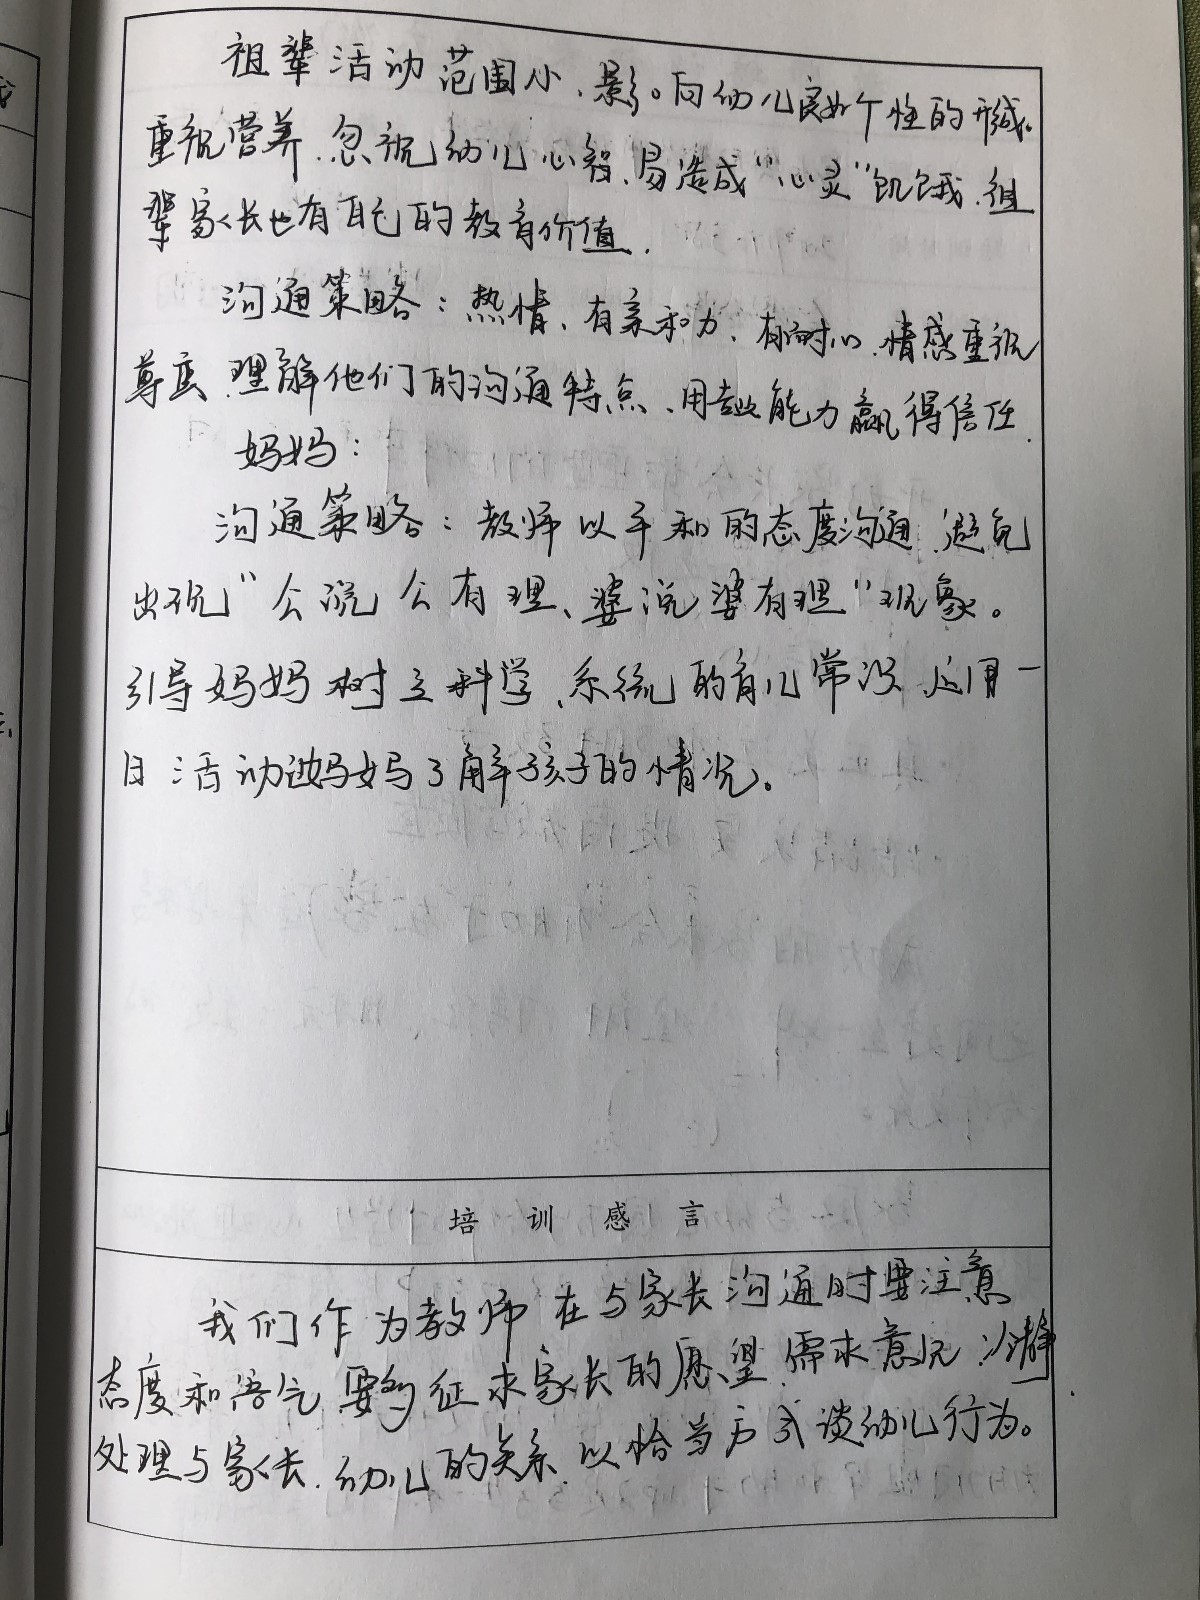 祖辈活动范围小、影响幼儿良好个性的形成。
重视营养、忽视幼儿心智、易造成“心灵”饥饿、祖
辈家长也有自己的教育价值.
沟通策略：热情、有亲和力、有耐心、情感重视
尊重、理解他们的沟通特点、用专业能力赢得信任.
妈妈：
沟通策略：教师以平和的态度沟通、避免
出现“公说公有理、婆说婆有理”现象。
引导妈妈树立科学、系统的育儿常识 运用一
日活动让妈妈了解孩子的情况。
培训感言
我们作为教师 在与家长沟通时要注意
态度和语气 要多征求家长的愿望、需求意见、冷静
处理与家长、幼儿的关系、以恰当方式谈幼儿行为。